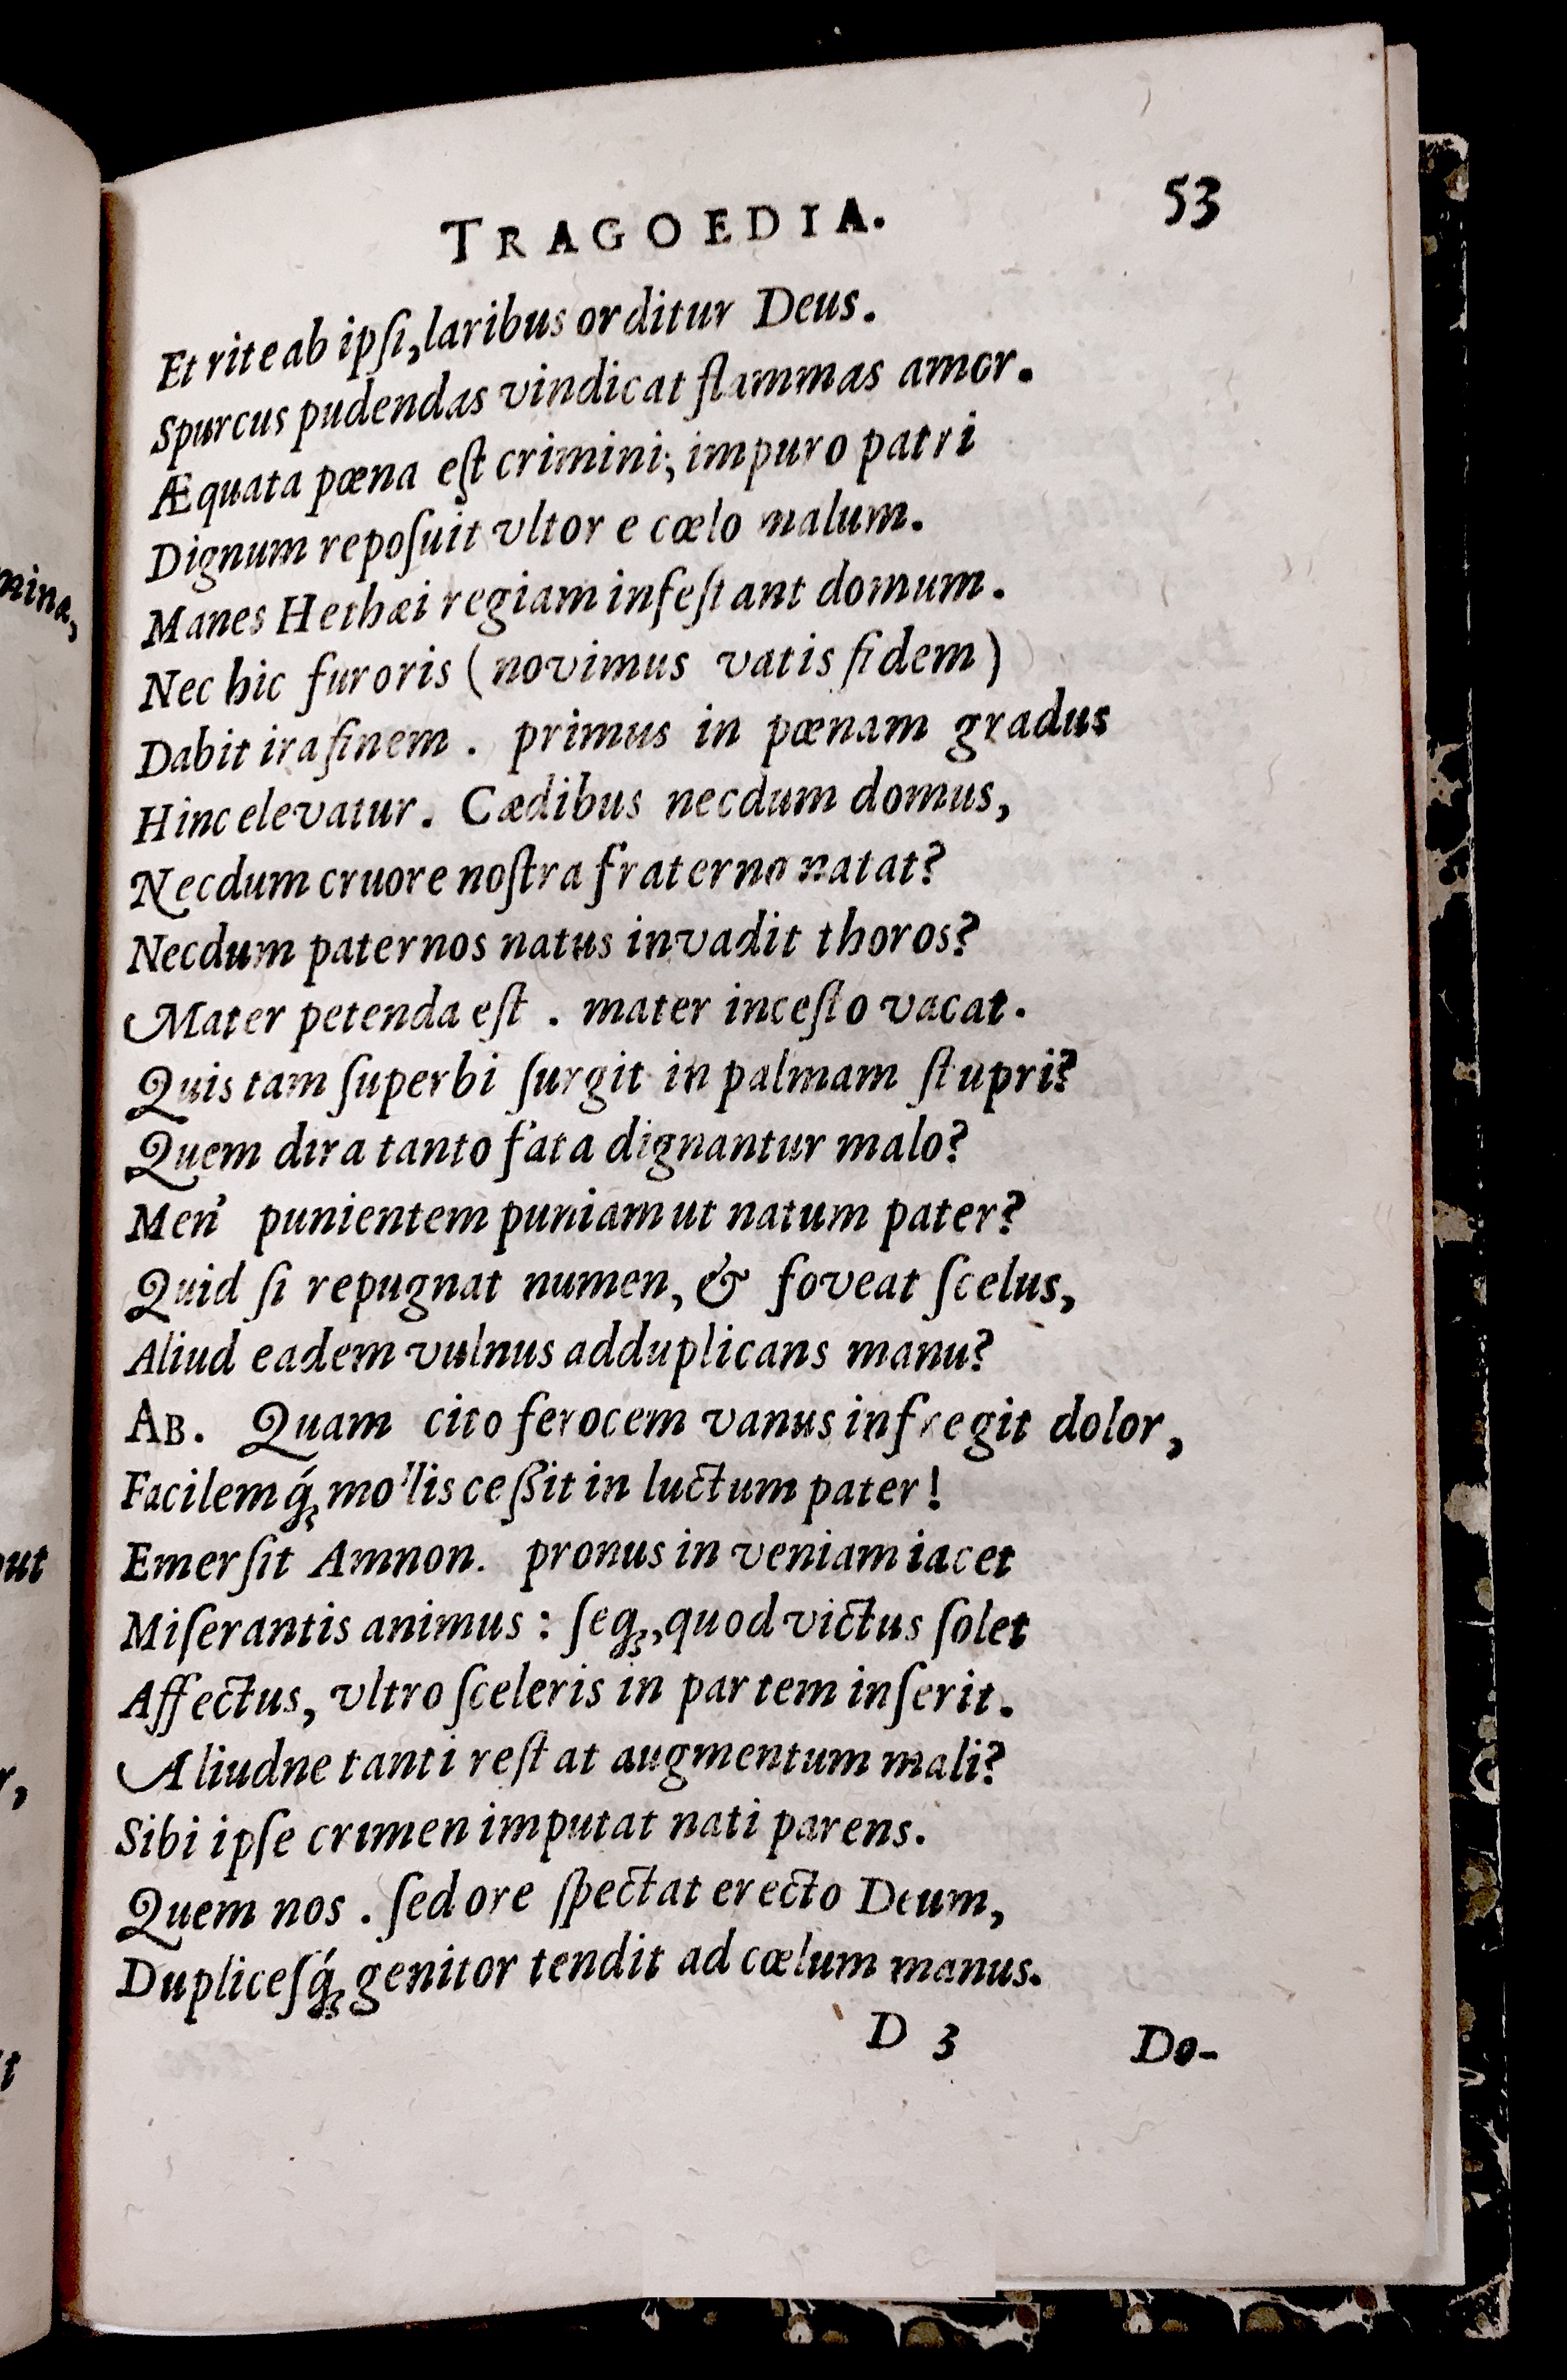 TRAGOEDIA. 53
Et rite ab ipſi, laribus orditur Deus.
Spurcus pudendas vindicat flammas amor.
Æquata pœna eſt crimini; impuro patri
Dignum repoſuit vltor e cœlo malum.
Manes Hethæi regiam infeſtant domum.
Nec hic furoris (novimus vatis fidem)
Dabit ira finem. primus in pœnam gradus
Hinc elevatur. Cædibus necdum domus,
Necdum cruore noſtra fraterno natat?
Necdum paternos natus invadit thoros?
Mater petenda eſt. mater inceſto vacat.
Quis tam ſuperbi ſurgit in palmam ſtupri?
Quem dira tanto fata dignantur malo?
Men' punientem puniam ut natum pater?
Quid ſi repugnat numen, & foveat ſcelus,
Aliud eadem vulnus adduplicans manu?
AB. Quam cito ferocem vanus infregit dolor,
Facilemq́; mollis ceßit in luctum pater!
Emerſit Amnon. pronus in veniam iacet
Miſerantis animus: ſeq;, quod victus ſolet
Affectus, vltro ſceleris in partem inſerit.
Aliudne tanti reſtat augmentum mali?
Sibi ipſe crimen imputat nati parens.
Quem nos. ſed ore ſpectat erecto Deum,
Duplicesq́; genitor tendit ad cœlum manus.
D 3 Do-
mina,
out
r,
t